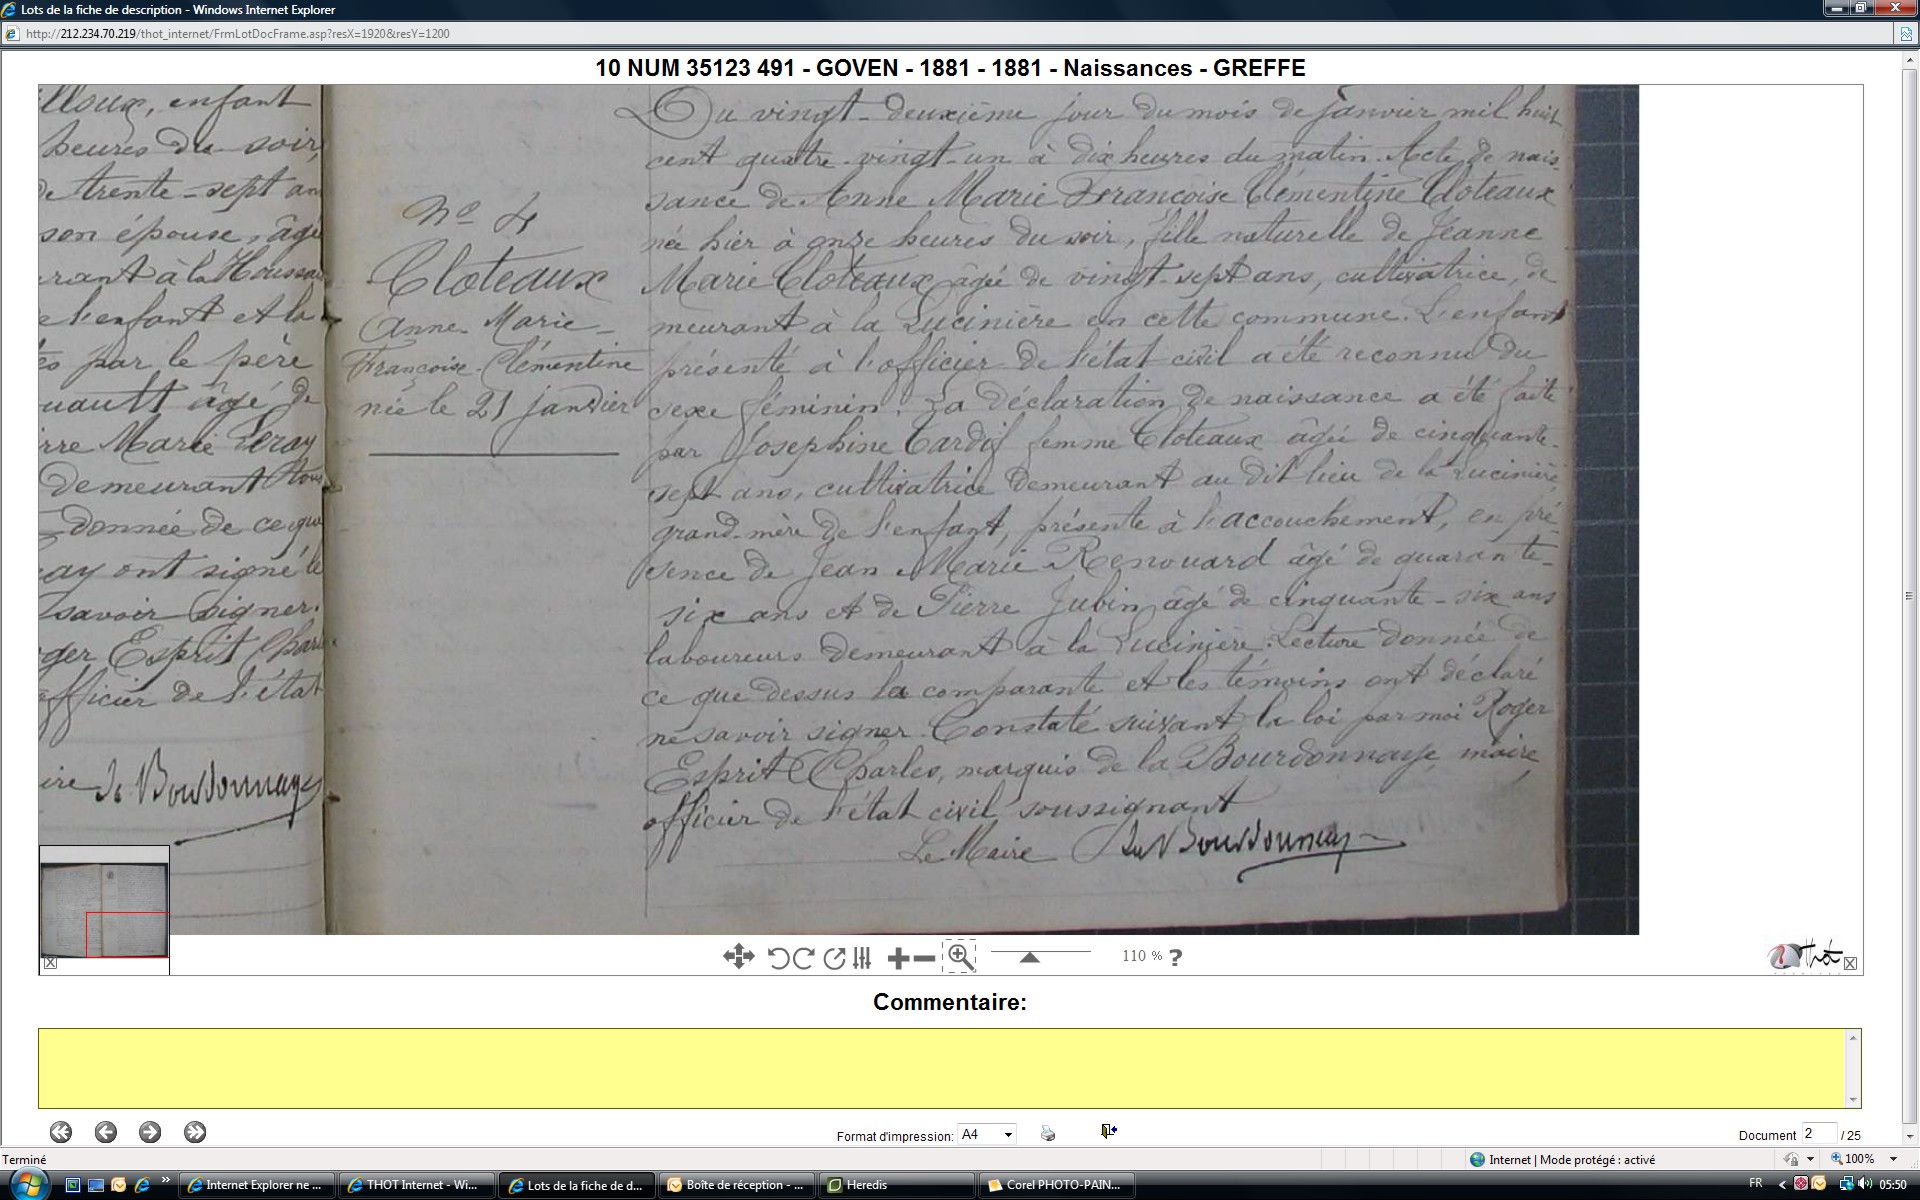 Lots de la fiche de description - Windows Internet Explorer
http://212.234.70.219/thot_internet/FrmLotDocFrame.asp?resX=1920&resY=1200
10 NUM 35123 491 - GOVEN - 1881 - 1881 - Naissances - GREFFE
enfant
heures du soir,
de trente-sept an
son épouse, âgé
rant à la Houssa
e l'enfant et la
és par le père
uault âgé de
rre Marie Leray
demeurant tous
donnée de ce que
ay ont signé le
savoir signer.
ger Esprit Charl
officier de l'état
ire de la Bourdonnaye
No 4
Cloteaux
Anne-Marie-
Françoise-Clémentine
née le 21 janvier
Du vingt-deuxième jour du mois de janvier mil huit
cent quatre-vingt-un à dix heures du matin. Acte de nais-
sance de Anne Marie Françoise Clémentine Cloteaux
née hier à onze heures du soir, fille naturelle de Jeanne
Marie Cloteaux âgée de vingt-sept ans, cultivatrice, de
meurant à la Lucinière en cette commune. L'enfant
présenté à l'officier de l'état civil a été reconnu du
sexe féminin. La déclaration de naissance a été faite
par Josephine Tardif femme Cloteaux âgée de cinquante-
sept ans, cultivatrice demeurant au dit lieu de la Lucinière,
grand-mère de l'enfant, présente à l'accouchement, en pré-
sence de Jean Marie Renouard âgé de quarante-
six ans et de Pierre Jubin âgé de cinquante-six ans
laboureurs demeurant à la Lucinière. Lecture donnée de
ce que dessus la comparante et les témoins ont déclaré
ne savoir signer. Constaté suivant la loi par moi Roger
Esprit Charles, marquis de la Bourdonnaye, maire,
officier de l'état civil soussignant
Le Maire de la Bourdonnaye
110 % ?
Thot
Commentaire:
Format d'impression: A4
Document 2 / 25
Terminé
Internet | Mode protégé : activé
100%
Internet Explorer ne ...
THOT Internet - Wi...
Lots de la fiche de d...
Boîte de réception - ...
Heredis
Corel PHOTO-PAIN...
FR
05:50